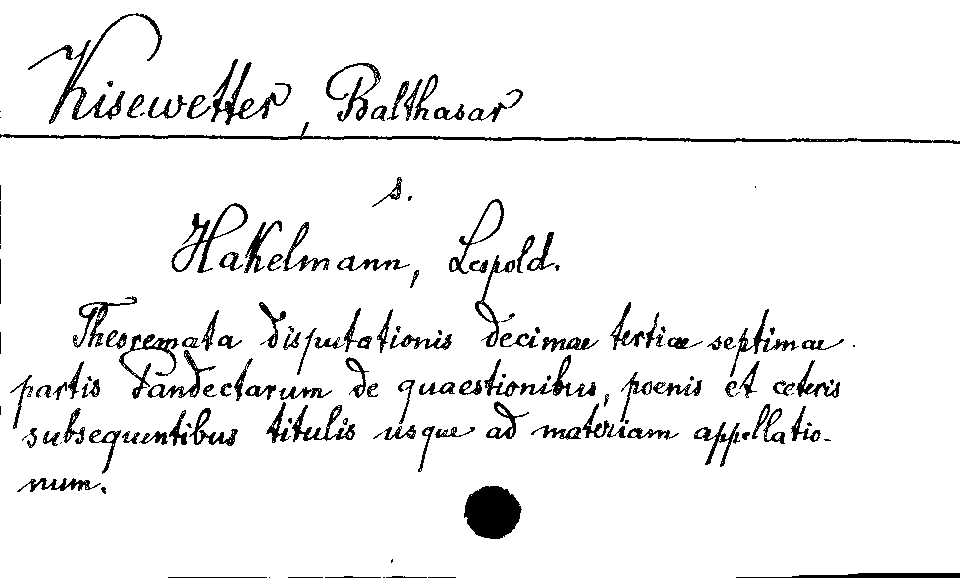 Kisewetter, Balthasar
s.
Hakelmann, Leopold.
Theoremata disputationis decimae tertiae septimae
partis Pandectarum de quaestionibus, poenis et ceteris
subsequentibus titulis usque ad materiam appellatio-
num.